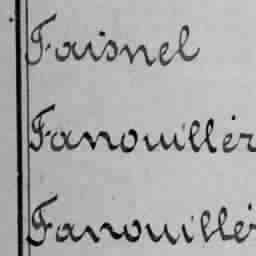 Faisnel
Fanouillèr
Fanouillè